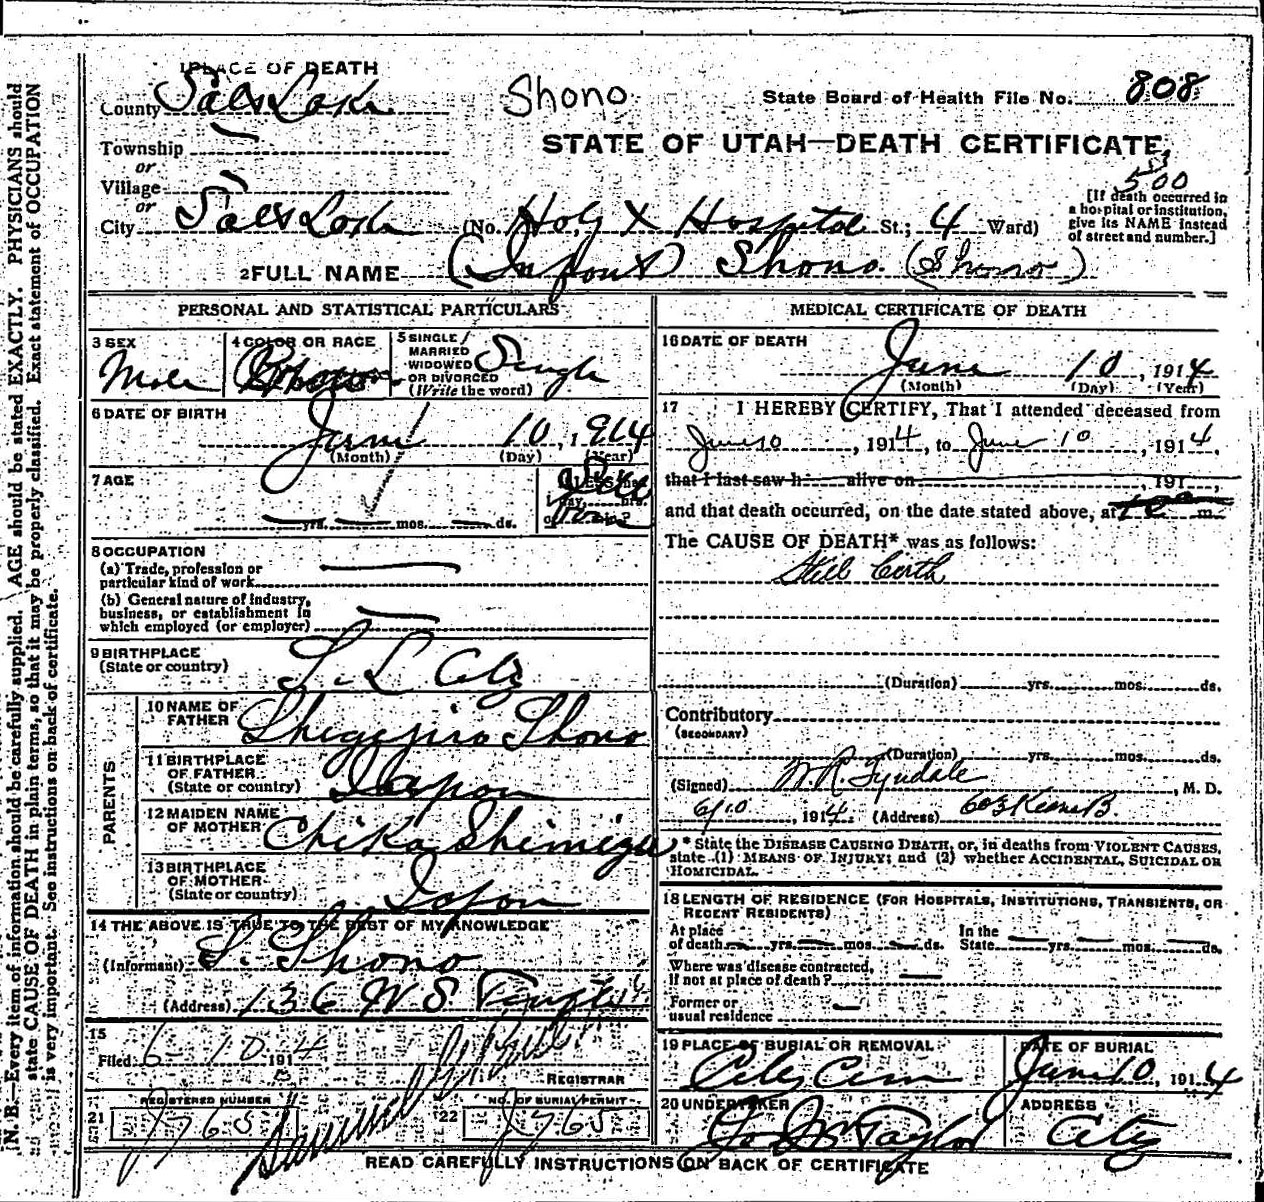 1 PLACE OF DEATH
County Salt Lake
Shono
State Board of Health File No. 808
STATE OF UTAH—DEATH CERTIFICATE
Township
or
Village
or
City Salt Lake (No. Holy X Hospital St.; 4 Ward)
500
[If death occurred in
a hospital or institution,
give its NAME instead
of street and number.]
2 FULL NAME (Infant) Shono (Shono)
PERSONAL AND STATISTICAL PARTICULARS
3 SEX
Male
4 COLOR OR RACE
5 SINGLE
MARRIED
WIDOWED
OR DIVORCED
(Write the word)
Single
6 DATE OF BIRTH
June 10, 1914
(Month) (Day) (Year)
7 AGE
yrs. mos. ds.
8 OCCUPATION
(a) Trade, profession or
particular kind of work
(b) General nature of industry,
business, or establishment in
which employed (or employer)
9 BIRTHPLACE
(State or country)
S. L City
PARENTS
10 NAME OF
FATHER
Shigejiro Shono
11 BIRTHPLACE
OF FATHER
(State or country)
Japan
12 MAIDEN NAME
OF MOTHER
Chika Shimizu
13 BIRTHPLACE
OF MOTHER
(State or country)
Japan
14 THE ABOVE IS TRUE TO THE BEST OF MY KNOWLEDGE
(Informant) S. Shono
(Address) 136 W S. Temple
15
Filed 6-10 1914
REGISTRAR
REGISTERED NUMBER
21 J765
NO. OF BURIAL PERMIT
22 J765
MEDICAL CERTIFICATE OF DEATH
16 DATE OF DEATH
June 10, 1914
(Month) (Day) (Year)
17 I HEREBY CERTIFY, That I attended deceased from
June 10, 1914, to June 10, 1914,
that I last saw h alive on , 191 ,
and that death occurred, on the date stated above, at m.
The CAUSE OF DEATH* was as follows:
Still birth
(Duration) yrs. mos. ds.
Contributory
(SECONDARY)
(Duration) yrs. mos. ds.
(Signed) W. R. Tyndale, M. D.
6/10, 1914. (Address) 603 Kearns B.
* State the DISEASE CAUSING DEATH, or, in deaths from VIOLENT CAUSES,
state (1) MEANS OF INJURY; and (2) whether ACCIDENTAL, SUICIDAL OR
HOMICIDAL.
18 LENGTH OF RESIDENCE (FOR HOSPITALS, INSTITUTIONS, TRANSIENTS, OR
RECENT RESIDENTS)
At place
of death yrs. mos. ds.
In the
State yrs. mos. ds.
Where was disease contracted,
If not at place of death?
Former or
usual residence
19 PLACE OF BURIAL OR REMOVAL
City Cem
DATE OF BURIAL
June 10, 1914
20 UNDERTAKER
Jos Wm Taylor
ADDRESS
City
READ CAREFULLY INSTRUCTIONS ON BACK OF CERTIFICATE
N. B.—Every item of information should be carefully supplied. AGE should be stated EXACTLY. PHYSICIANS should
state CAUSE OF DEATH in plain terms, so that it may be properly classified. Exact statement of OCCUPATION
is very important. See instructions on back of certificate.